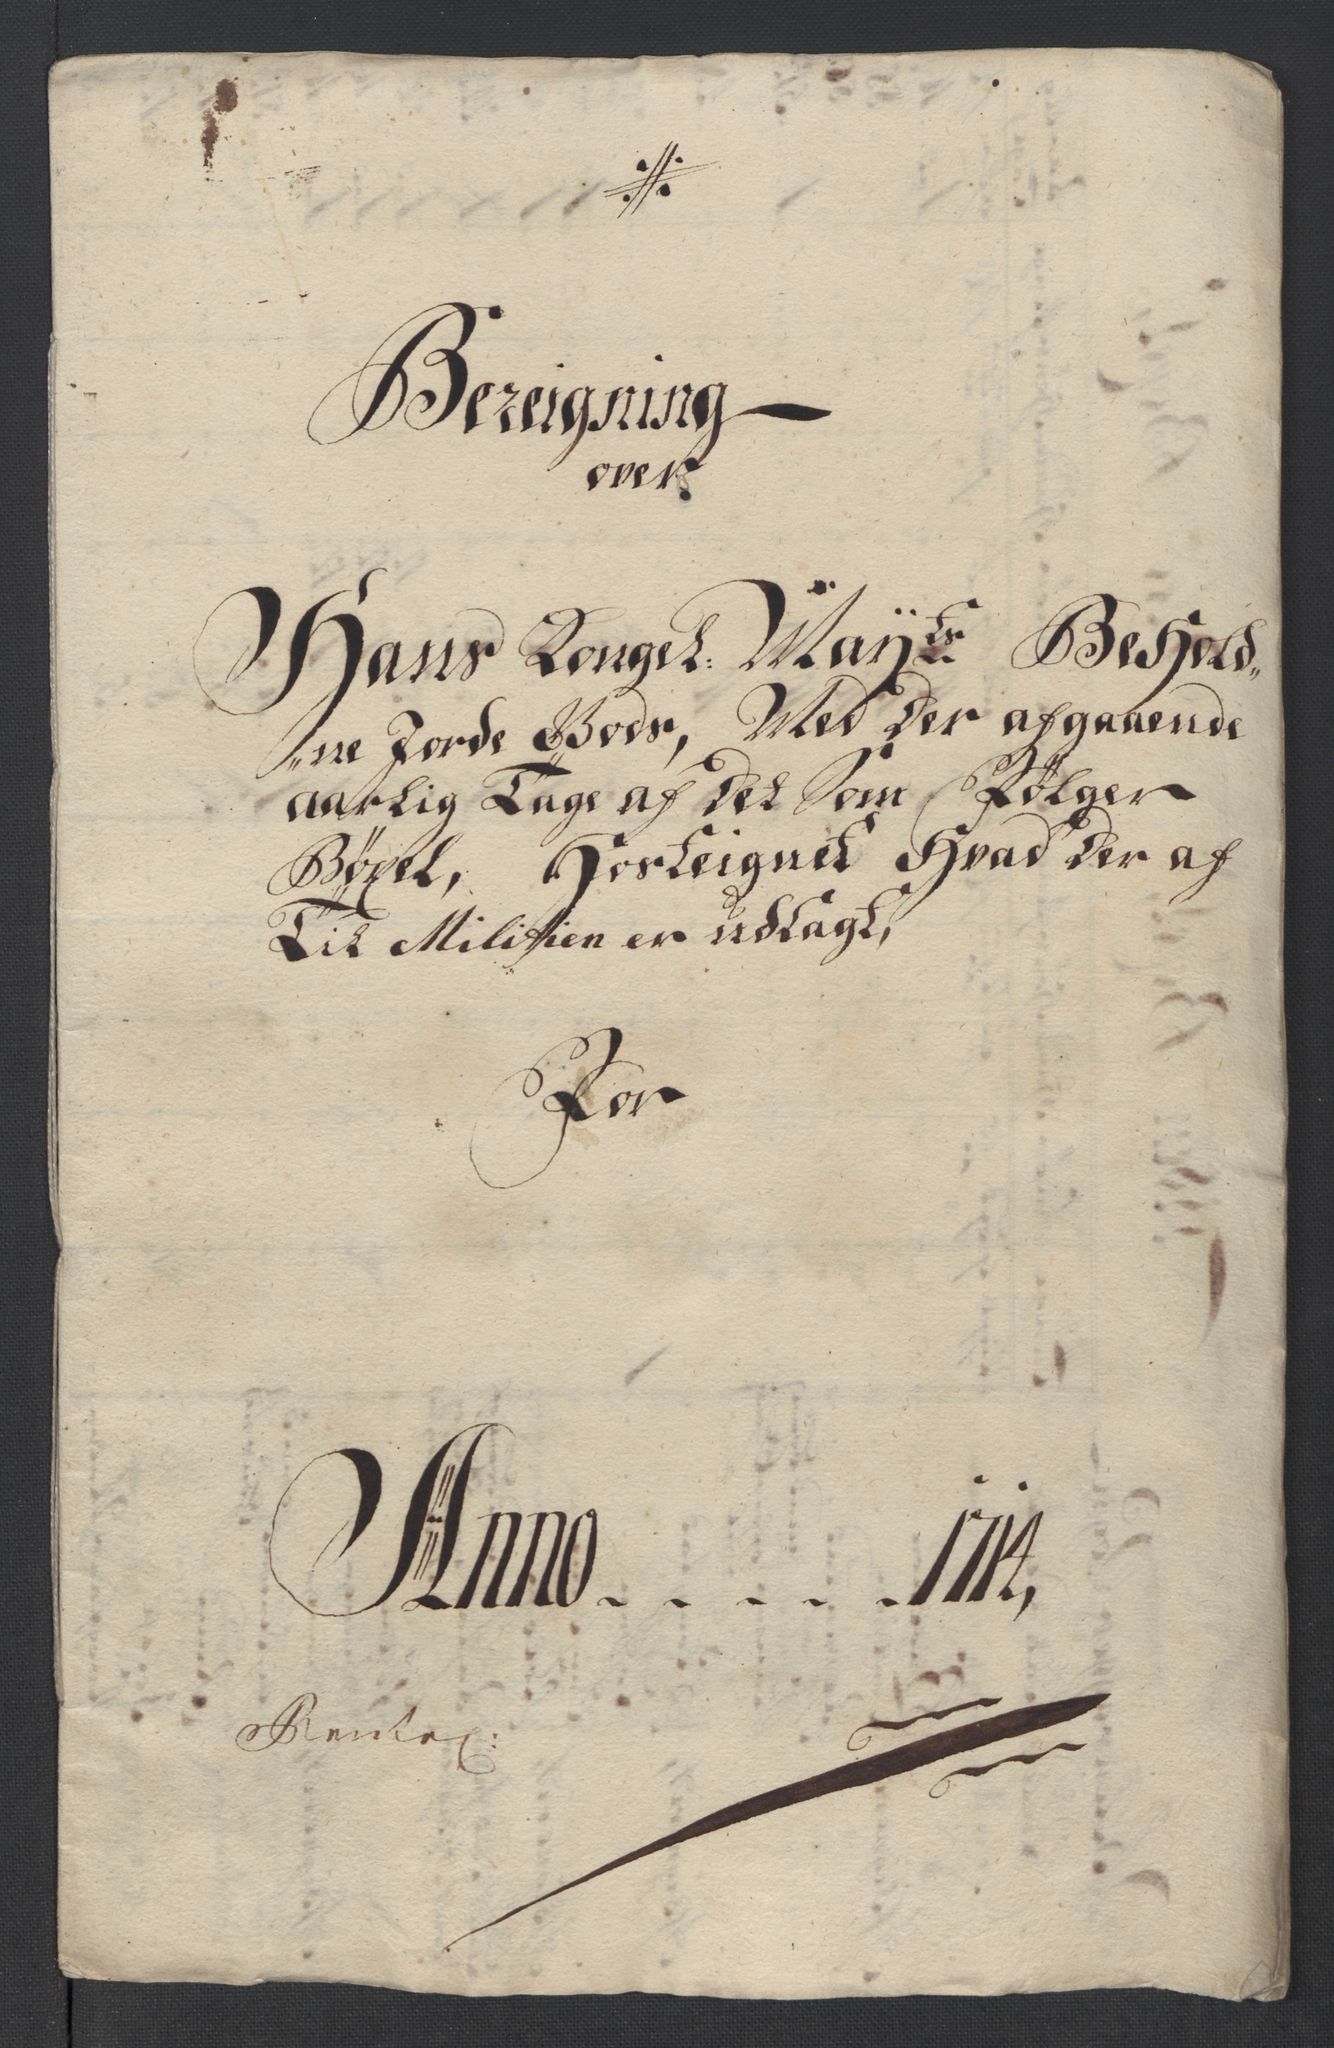 Bereigning
over
Hans Kongel: Mayts Behold„
„ne Jorde Gods, Med der afgaaende
aarlig Tage af det Som Følger
Bøxel, Hosteignet Hvad der af
Til Militien er udlagt,
For
Anno . . . . . 1714,